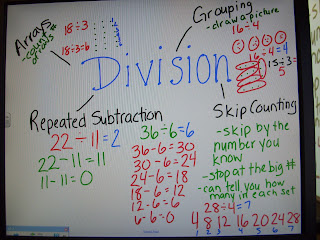 Arrays
-count #
of rows
18÷3
18÷3=6
Grouping
-draw a picture
16÷4
16÷4=4
15÷3=
5
Division
Repeated Subtraction
22÷11=2
22-11=11
11-11=0
36÷6=6
36-6=30
30-6=24
24-6=18
18-6=12
12-6=6
6-6=0
Skip Counting
-skip by the
number you
know
-stop at the big #
-can tell you how
many in each set
28÷4=7
4 8 12 16 20 24 28
1 2 3 4 5 6 7